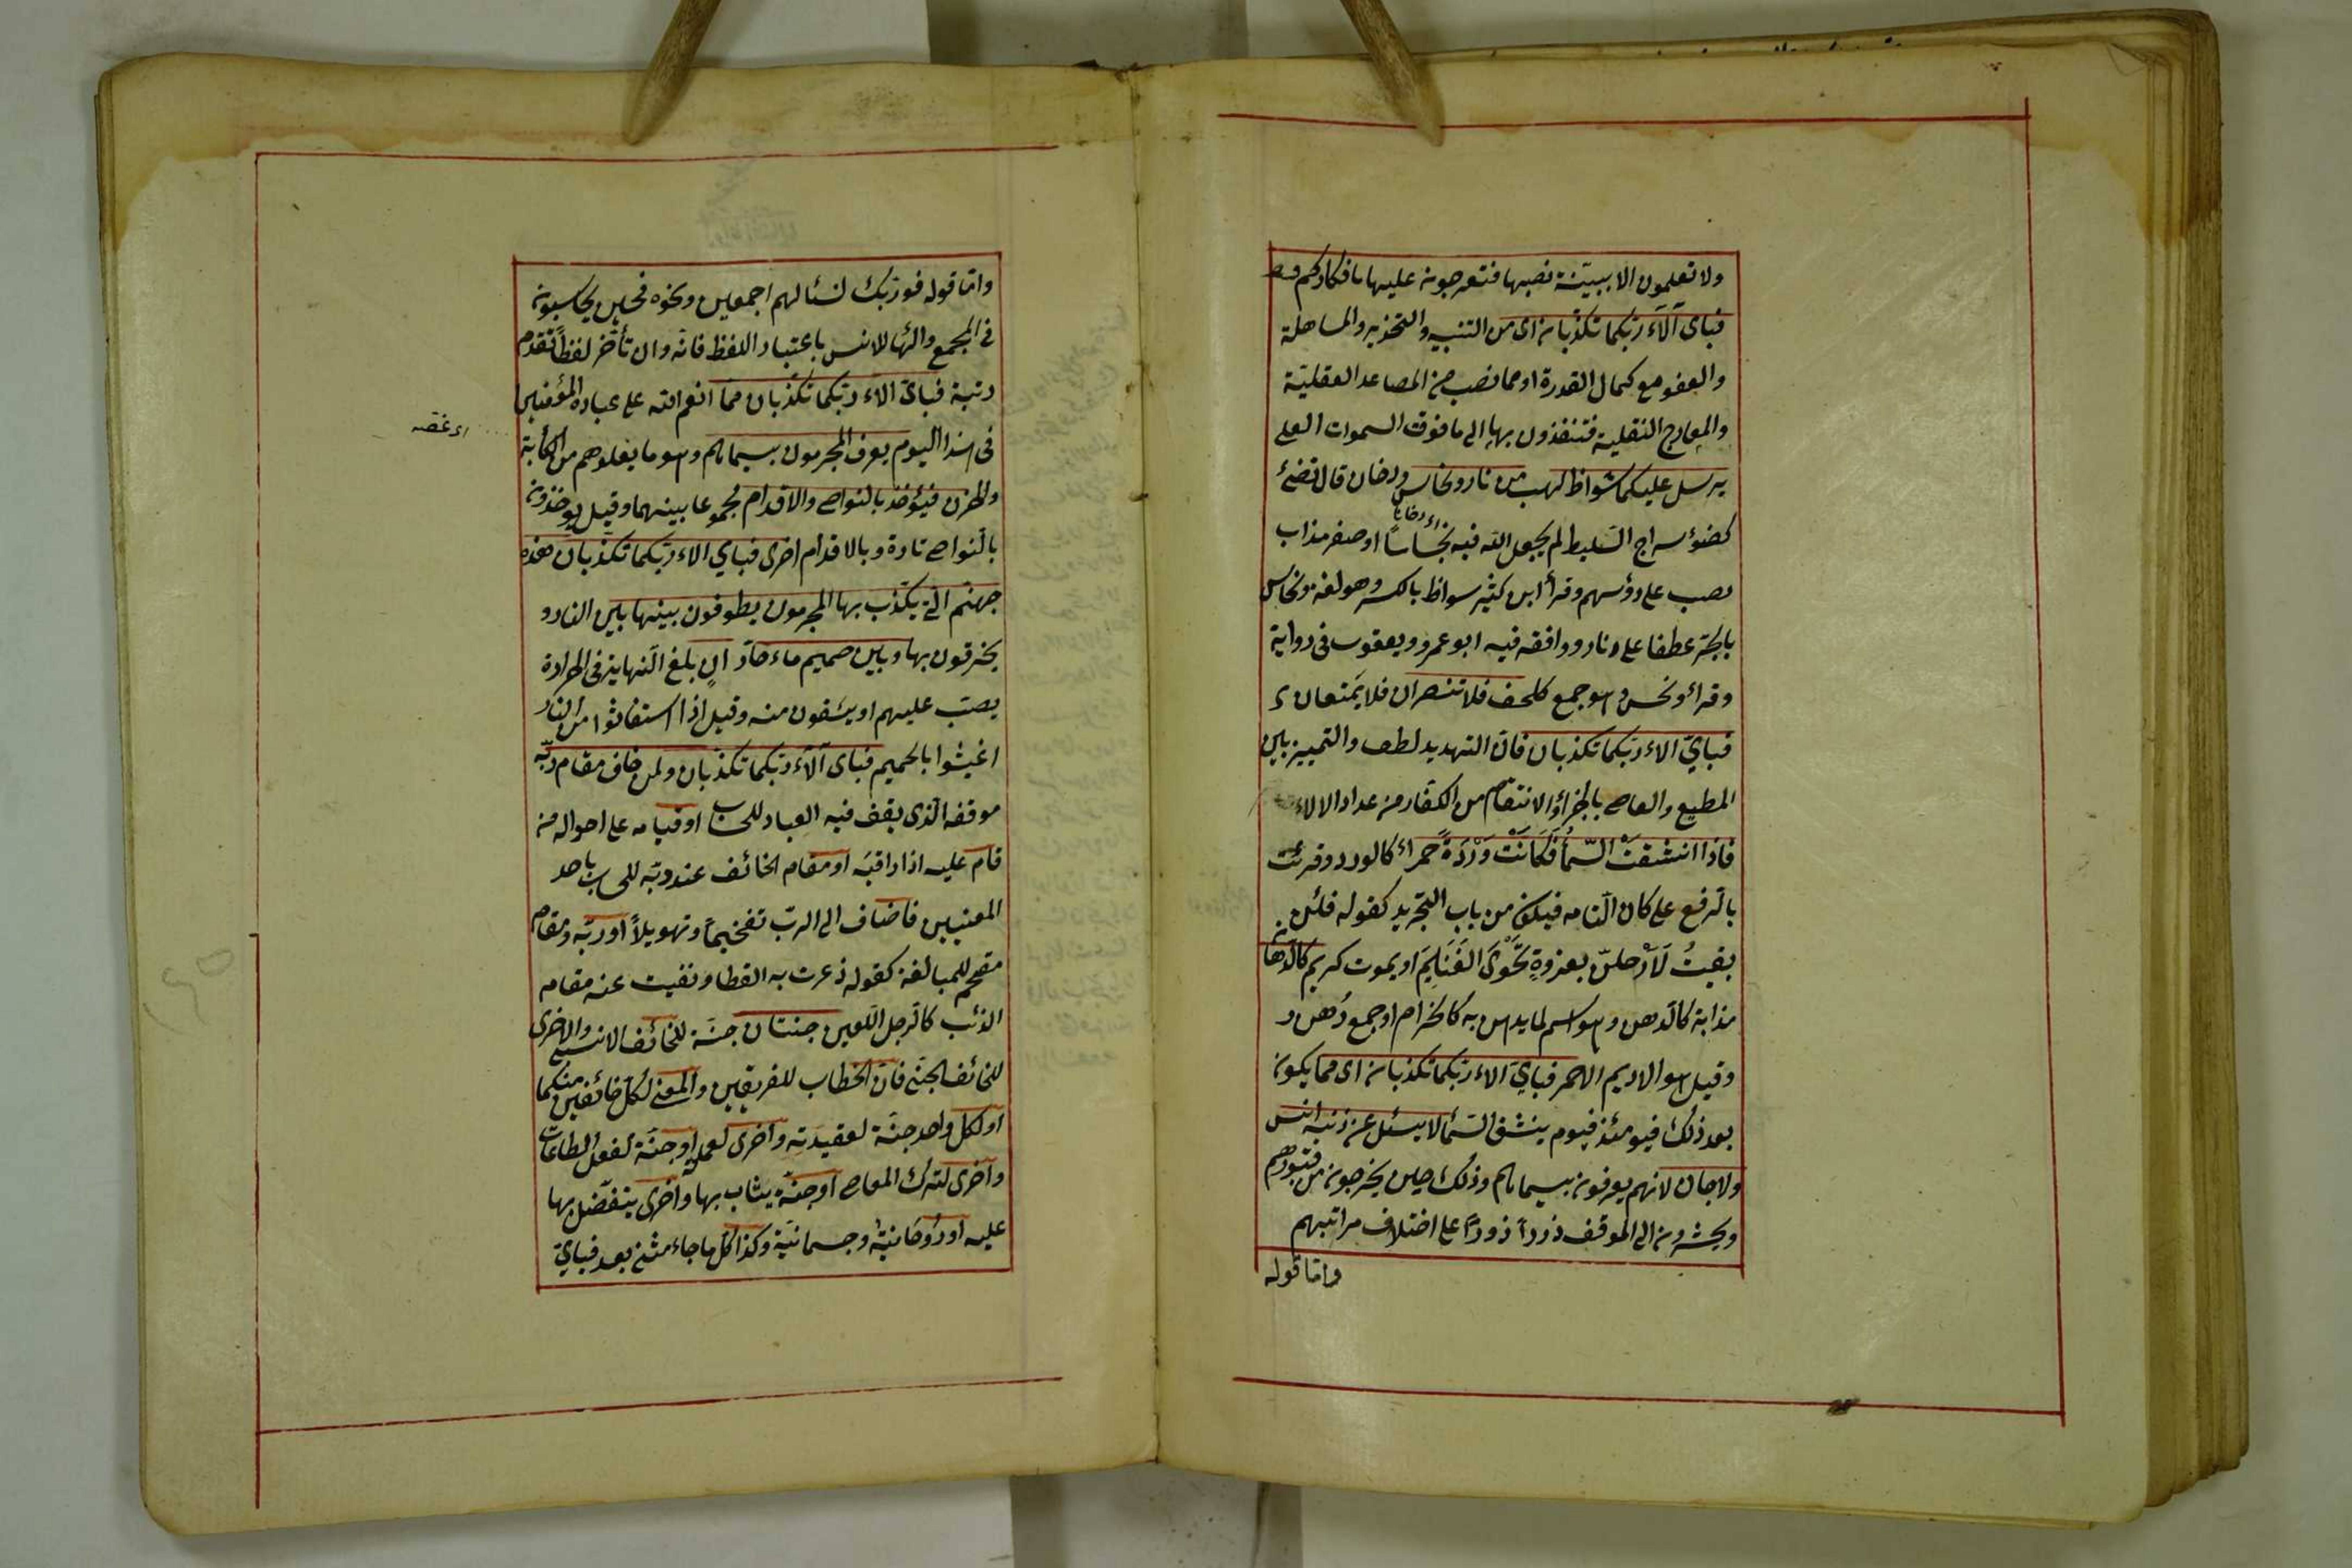 ولا تعلمون الا ببيّنة نصبها فتعرجون عليها بافكاركم
فباى آلاء ربكما تكذبان اى من التنبيه والتحذير والمساهلة
والعفو مع كمال القدرة او مما نصب من المصاعد العقليّة
والمعارج النقلية فتنفذون بها الى ما فوق السموات العلى
يرسل عليكما شواظ لهب من نار ونحاس ودخان قال تضئ
كضوء سراج السّليط لم يجعل الله فيه نحاسًا او صفر مذاب
اى دخانا
يصب على رؤسهم وقرأ ابن كثير شواظ بالكسر وهو لغة ونحاس
بالجرّ عطفا على نار ووافقه فيه ابو عمرو ويعقوب فى رواية
وقرائ ونحس وهو جمع كلحف فلا تنتصران فلا يَمتعان
فباىّ الاء ربكما تكذبان فانّ التهديد لطف والتمييز بين
المطيع والعاصى بالجزاء والانتقام من الكفار من عداد الالاء
فاذا انشقتْ السّماُ فَكَانَتْ وَرْدَةً حمراء كالورد وقرئت
بالرفع على كان التامه فيكون من باب التجريد كقوله فلئن
بقيتُ لَاَرْحلنّ بغزوةٍ تَحْوى الغَنَايِمَ او يموت كريم كالدّهان
مذابة كالدهن وهو اسم لما يدهن به كالخزام او جمع دُهن
وقيل هو الاديم الاحمر فباىّ الاء ربكما تكذبان اى مما يكون
بعد ذلك فيومئذ فيوم ينشق السّماُ لا يسئل عن ذنبه انس
ولا جان لانهم يعرفون بسيماهم وذلك حين يخرجون من قبورهم
ويحشرون الى الموقف ذودا ذودا على اختلاف مراتبهم
وامّا قوله
وامّا قوله فوربك لنسئالهم اجمعين ونحوه فحين يحاسبون
فى المجمع والهاء للانس باعتبار اللفظ فانه وان تأخّر لفظًا تقدم
رتبة فباىّ الاء ربكما تكذّبان ممّا انعم الله على عباده المؤمنين
فى هذا اليوم يعرف المجرمون بسيماهم وهو ما يعلوهم من الكآبة
والحزن فيؤخذ بالنواصى والاقدام مجموعا بينهما وقيل يوخذون
بالنّواصى تارة وبالاقدام اخرى فباي الاء ربّكما تكذبان هذه
جهنّم الّتى يكذّب بها المجرمون يطوفون بينها بين النار و
يخرقون بها وبين حميم ماء حارّ انٍ بلغ النّهاية فى الحرارة
يصبّ عليهم او يسقون منه وقيل اذا استغاثوا من النار
اغيثوا بالحميم فباى آلاء ربّكما تكذّبان ولمن خاف مقام ربّه
موقفه الّذى يقف فيه العباد للحساب او قيامه على احواله من
قام عليه اذا راقبَه او مقام الخائف عند ربّه للحساب باحد
المعنيين فاضاف الى الربّ تفخيمًا وتهويلاً او ربّه ومقام
مقحم للمبالغة كقوله ذعرت به القطا ونفيت عنه مقام
الذئب كالرجل اللّعين جنتان جنّة للخائف الانسى والاخرى
للخائف الجنّى فانّ الخطاب للفريقين والمعنى لكلّ خائفين منكما
او لكل واحد جنّة لعقيدته واخرى لعمله او جنّة لفعل الطاعات
واخرى لترك المعاصى او جنّة يثاب بها واخرى يتفضّل بها
عليه او رُوحَانيّة وجسمانيّة وكذا كلّ ما جاء مثنى بعد فباىّ